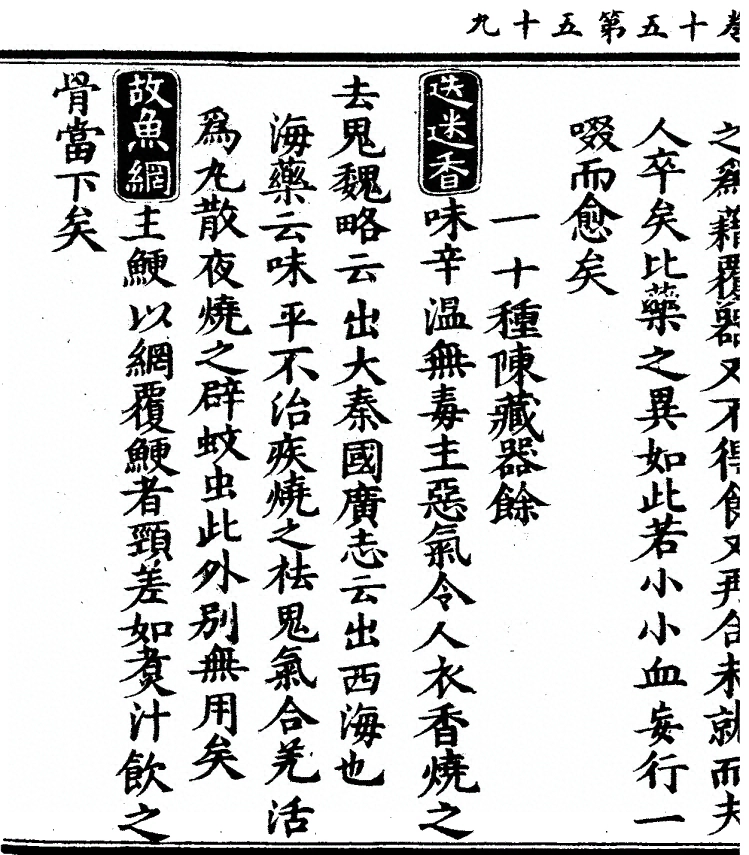 卷十五第五十九
之爲藉覆器又不得飲又再舍未就而夫
人卒矣比藥之異如此若小小血妄行一
啜而愈矣
一十種陳藏器餘
迭迷香味辛温無毒主惡氣令人衣香燒之
去鬼魏略云出大秦國廣志云出西海也
海藥云味平不治疾燒之祛鬼氣合羌活
爲丸散夜燒之辟蚊虫此外別無用矣
故魚網主鯁以網覆鯁者頸差如煑汁飲之
骨當下矣